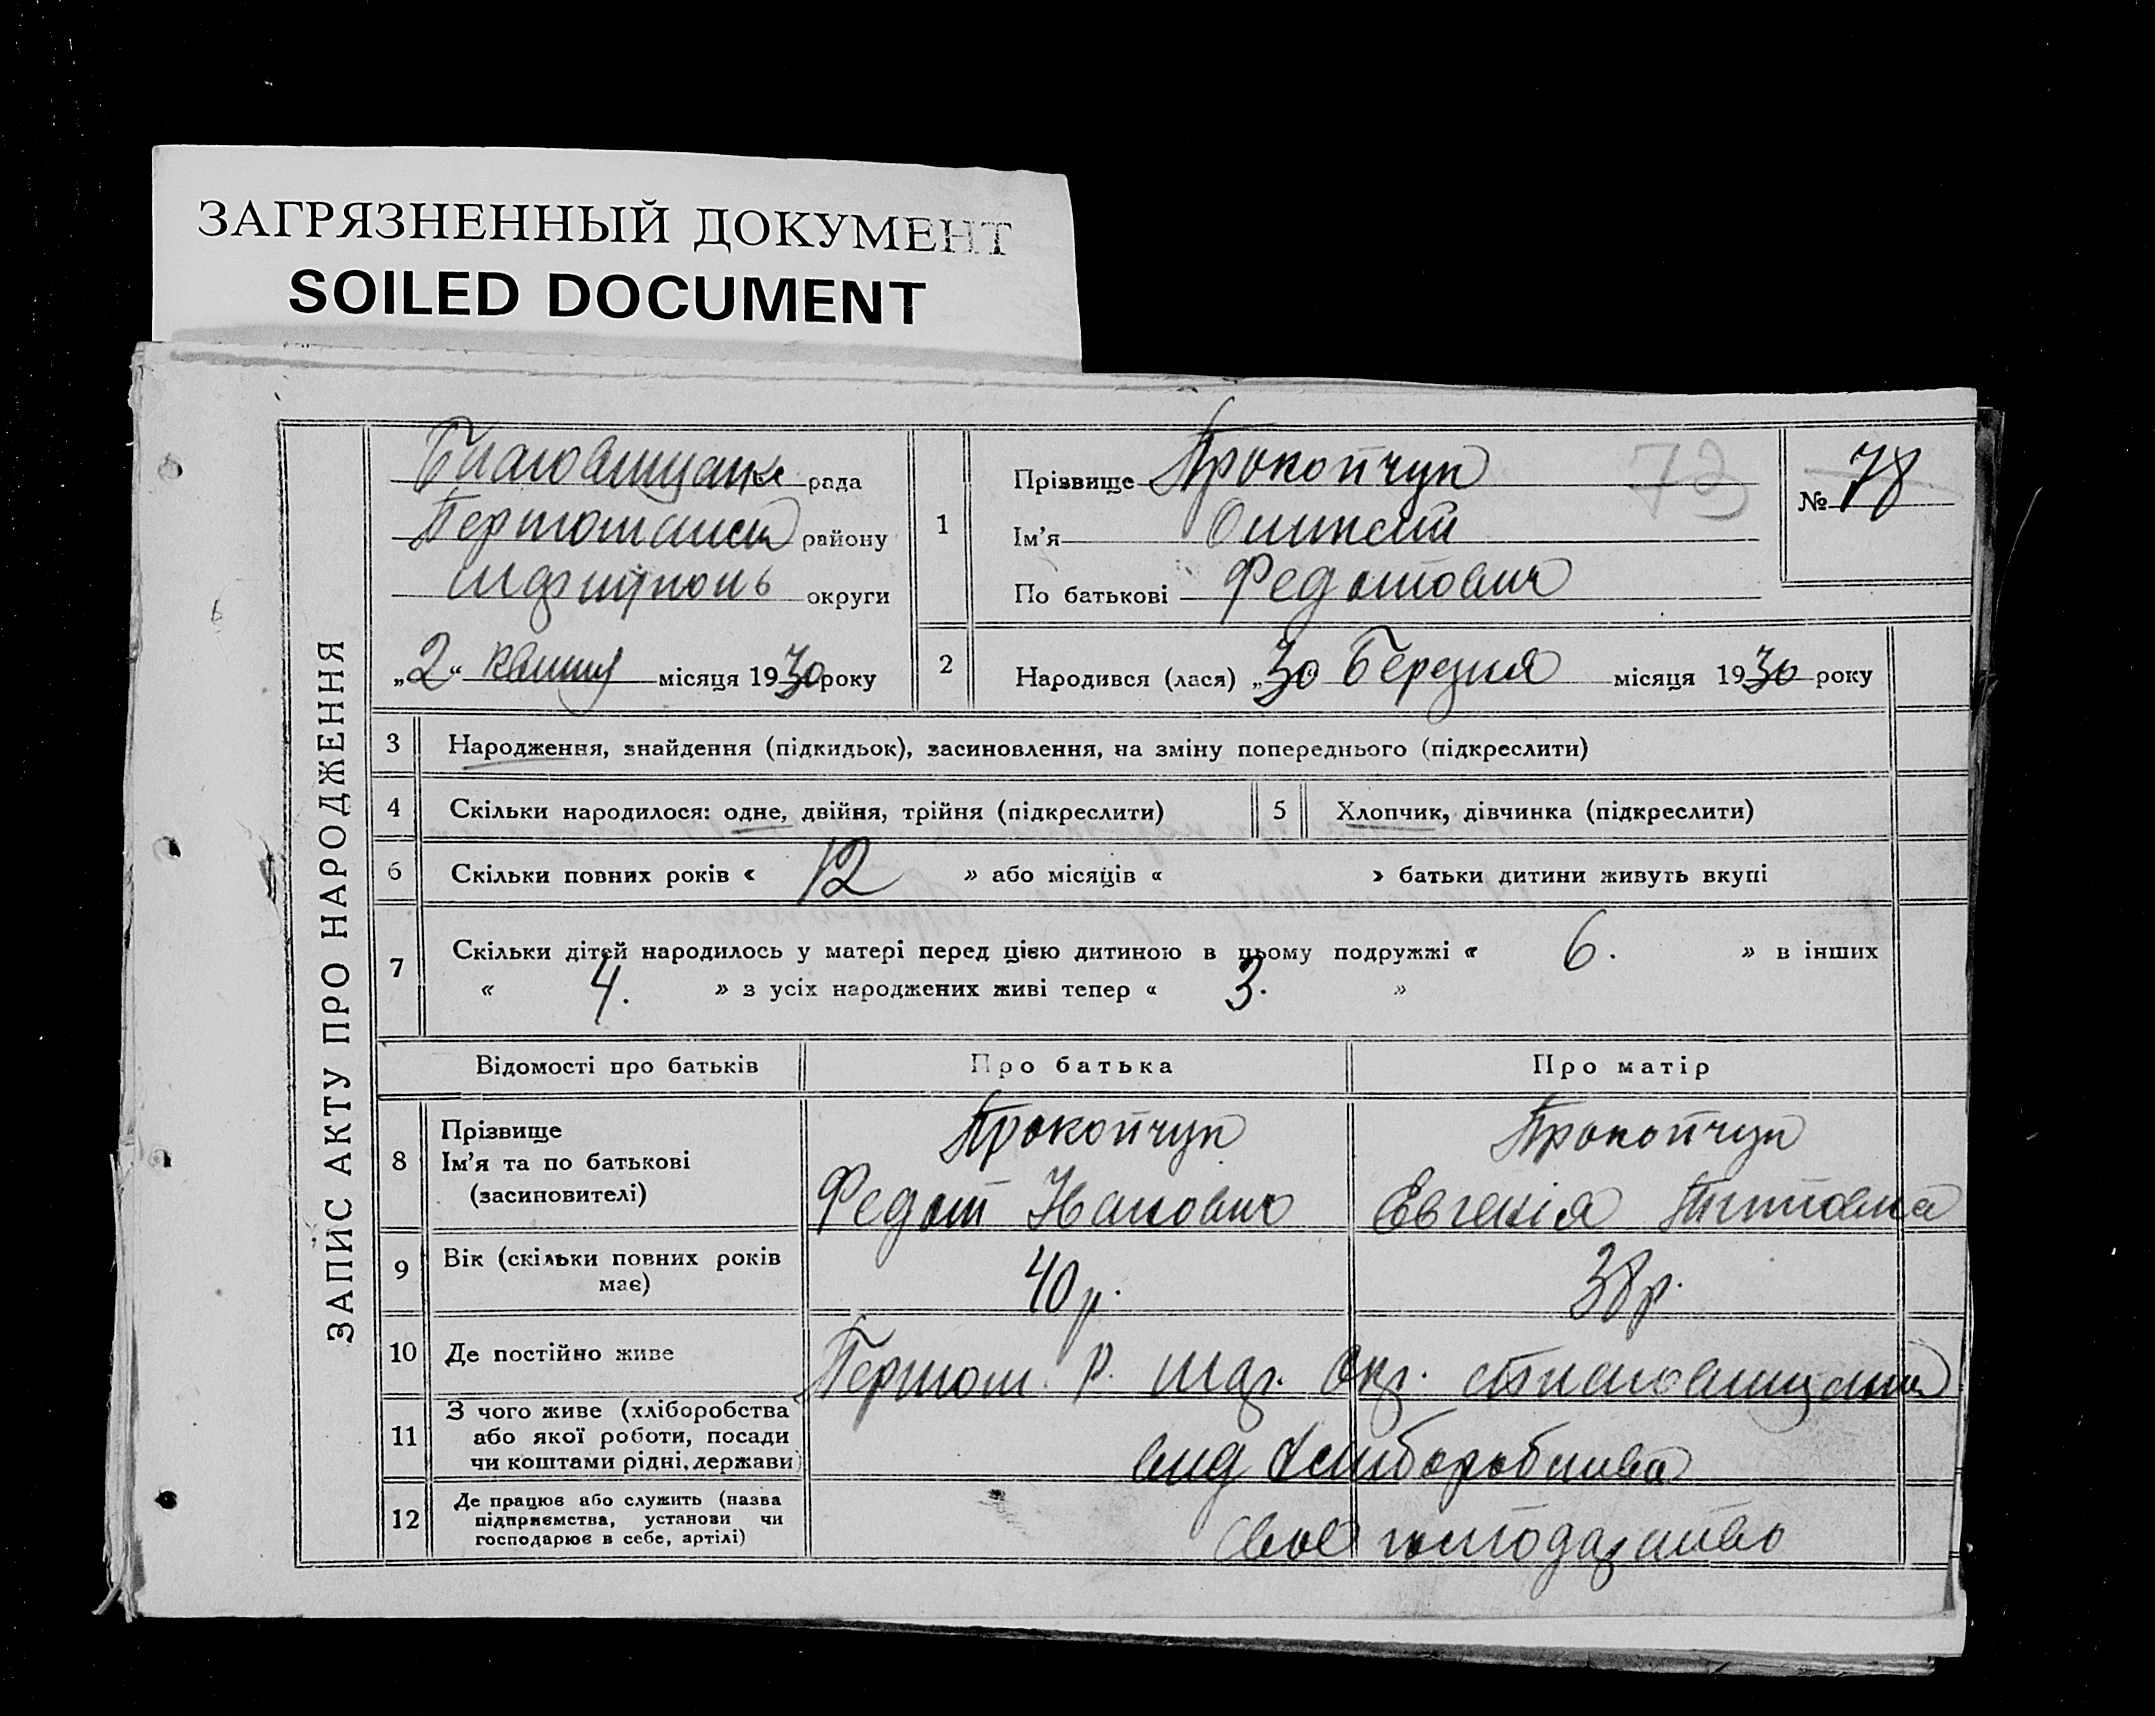 ЗАГРЯЗНЕННЫЙ ДОКУМЕНТ
SOILED DOCUMENT
ЗАПИС АКТУ ПРО НАРОДЖЕННЯ
рада
району
округи
„2“ квітня місяця 1930 року
1
Прізвище Прокопчук
Ім'я
По батькові Федотович
73
№ 78
2
Народився (лася) „30 Березня місяця 1930 року
3 Народження, знайдення (підкидьок), засиновлення, на зміну попереднього (підкреслити)
4 Скільки народилося: одне, двійня, трійня (підкреслити)
5 Хлопчик, дівчинка (підкреслити)
6 Скільки повних років « 12 » або місяців « » батьки дитини живуть вкупі
7 Скільки дітей народилось у матері перед цією дитиною в цьому подружжі « 6. » в інших
« 4. » з усіх народжених живі тепер « 3. »
Відомості про батьків Про батька Про матір
8
Прізвище
Ім'я та по батькові
(засиновителі)
Прокопчук
Федот Іванович
Прокопчук
Евгенія Титовна
9
Вік (скільки повних років
має)
40 р.
38 р.
10 Де постійно живе
Першом. р. Шдр. Окр.
11
З чого живе (хліборобства
або якої роботи, посади
чи коштами рідні, держави)
від хліборобства
12
Де працює або служить (назва
підприємства, установи чи
господарює в себе, артілі)
своє господарство